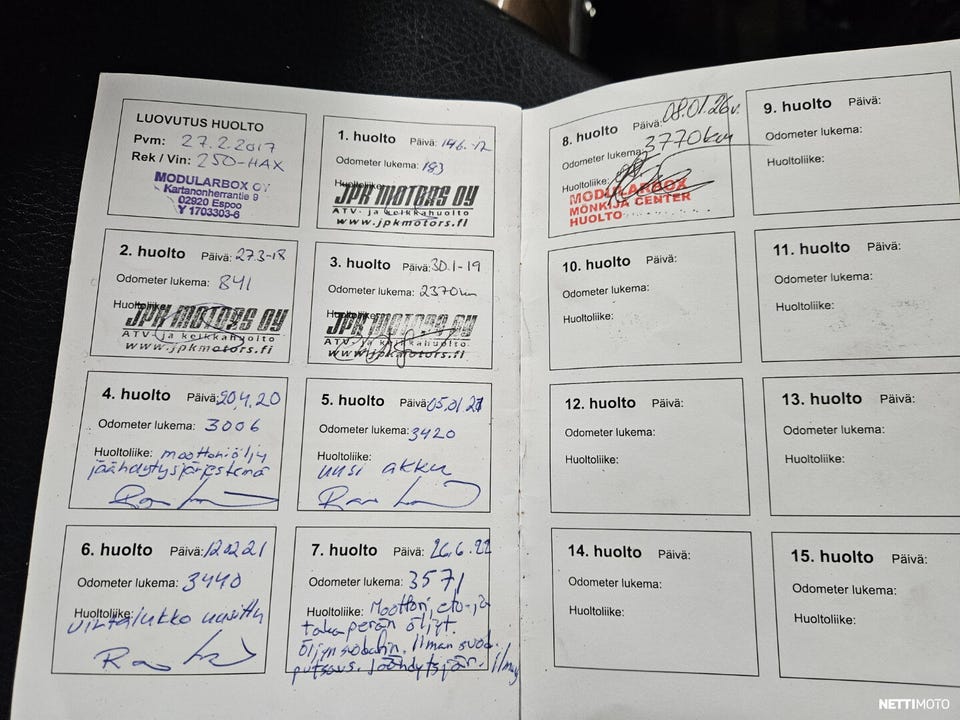 LUOVUTUS HUOLTO
Pvm: 27.2.2017
Rek / Vin: 250-HAX
MODULARBOX OY
Kartanonherrantie 9
02920 Espoo
Y 1703303-6
1. huolto Päivä: 146.-17
Odometer lukema: 183
Huoltoliike:
JPK MOTORS OY
ATV- ja kelkkahuolto
www.jpkmotors.fi
2. huolto Päivä: 27.3-18
Odometer lukema: 841
Huoltoliike:
JPK MOTORS OY
ATV- ja kelkkahuolto
www.jpkmotors.fi
3. huolto Päivä: 30.1-19
Odometer lukema: 2370km
Huoltoliike:
JPK MOTORS OY
ATV- ja kelkkahuolto
www.jpkmotors.fi
4. huolto Päivä: 20.4.20
Odometer lukema: 3006
Huoltoliike: moottoriöljy
jäähdytysjärjestelmä
5. huolto Päivä: 05.01.21
Odometer lukema: 3420
Huoltoliike:
uusi akku
6. huolto Päivä: 12.02.21
Odometer lukema: 3440
Huoltoliike:
virtalukko uusittu
7. huolto Päivä: 26.6.22
Odometer lukema: 3571
Huoltoliike: Moottori, etu- ja
takaperän öljyt.
Öljynsuodatin. Ilman suod.
putsaus. Jäähdytysjär.
8. huolto Päivä: 08.01.26v.
Odometer lukema: 3770km
Huoltoliike:
MODULARBOX
MÖNKIJÄ CENTER
HUOLTO
9. huolto Päivä:
Odometer lukema:
Huoltoliike:
10. huolto Päivä:
Odometer lukema:
Huoltoliike:
11. huolto Päivä:
Odometer lukema:
Huoltoliike:
12. huolto Päivä:
Odometer lukema:
Huoltoliike:
13. huolto Päivä:
Odometer lukema:
Huoltoliike:
14. huolto Päivä:
Odometer lukema:
Huoltoliike:
15. huolto Päivä:
Odometer lukema:
Huoltoliike:
NETTIMOTO